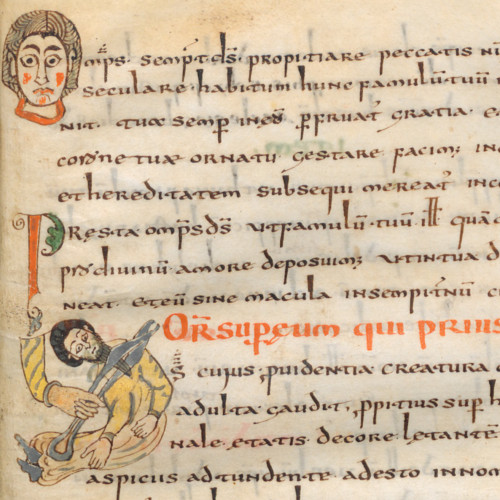 Omps sempt ds propitiare peccatis nr
seculare habitum hunc famulū tuū
nit tuae semp ineo pfruat gratia
coronae tuae ornatū gestare facim; in
et hereditatem subsequi mereat inc
Presta omps ds ut famulū tuū ill quā
pro divinū amore deposuim; ut in tua d
neat et eū sine macula in sempitnū c
Or super eum qui prius
Ds cujus pvidentia creatura
adulta gaudit ppitius sup h
nale etatis decore letante
aspicius ad tundente adesto in nom